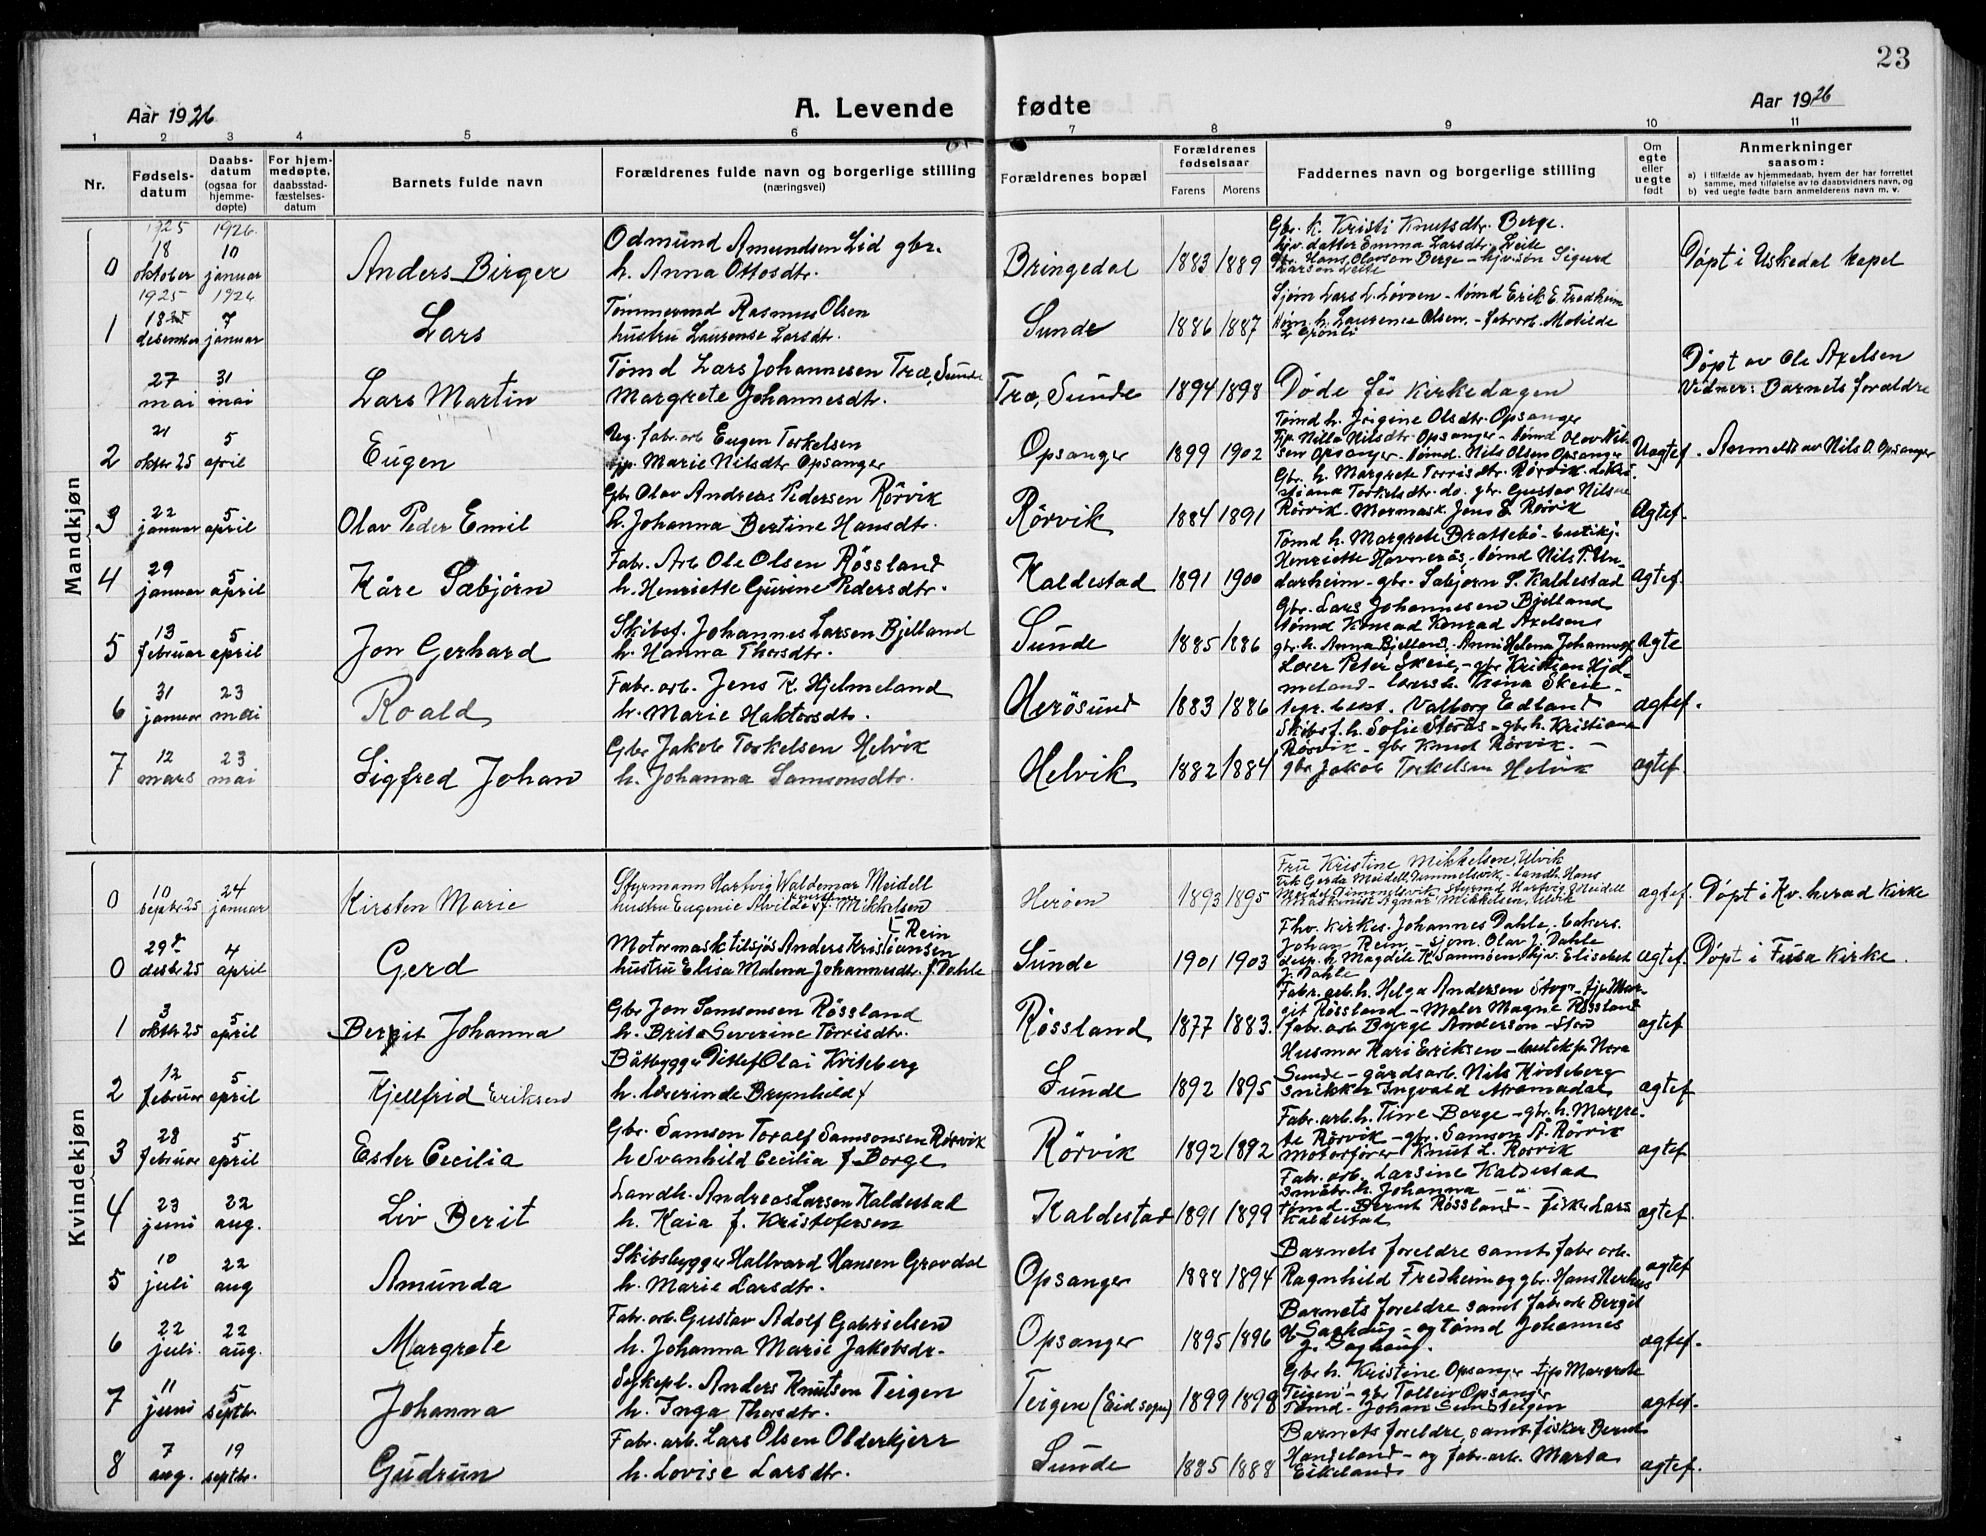 23
Aar 1926
A. Levende fødte
Aar 1926
1 2 3 4 5 6 7 8 9 10 11
Nr.
Fødsels-
datum
Daabs-
datum
(ogsaa for
hjemme-
døpte)
For hjem-
medøpte,
daabsstad-
fæstelses-
datum
Barnets fulde navn
Forældrenes fulde navn og borgerlige stilling
(næringsvei)
Forældrenes bopæl
Forældrenes
fødselsaar
Farens Morens
Faddernes navn og borgerlige stilling
Om
egte
eller
uegte
født
Anmerkninger
saasom:
a) i tilfælde av hjemmedaab, hvem der har forrettet
samme, med tilføielse av to daabsvidners navn, og
b) ved uegte født barn anmelderens navn m. v.
Mandkjøn
0
1925
18
oktober
1926
10
januar
Anders Birger
Odmund Amundsen Lid gbr.
h. Anna Ottosdtr.
Bringedal
1883 1889
Gbr. h. Kristi Knutsdtr. Berge.
hjv. datter Emma Larsdtr. Leite
gbr. Hans Olavson Berge - hjv. søn Sigurd
Larson Leite
Døpt i Uskedal kapel
1
1925
18
desember
1926
7
januar
Lars
Tømmermd Rasmus Olsen
hustru Laurense Larsdtr.
Sunde
1886 1887
Sjøm Lars L. Løvoen - tømd Erik E. Fredheim
h. Laurense Olsen. - fabrarb. Matilde
Grønli
27
mai
31
mai
Lars Martin
Tømd Lars Johannesen Træ, Sunde
Margrete Johannesdtr.
Træ, Sunde
1894 1898
Døde før kirkedagen
Døpt av Ole Axelsen
Vidner: Barnets foreldre
2
21
oktr 25
5
april
Eugen
Ug. fabr. arb Eugen Torkelsen
tjp. Marie Nilsdtr Opsanger
Opsanger
1899 1902
Tømd h. Jørgine Olsdtr. Opsanger
tjp. Nilla Nilsdtr. Opsanger - tømd Olav Nil-
sen Opsanger - tømd. Nils Olsen Opsanger
Uegtef.
Anmeldt av Nils O. Opsanger
3
22
januar
5
april
Olav Peder Emil
Gbr Olav Andreas Pedersen Rørvik
h. Johanna Bertine Hansdtr.
Rørvik
1884 1891
Gbr. h. Margrete Torrisdtr. Rørvik. d. Kri-
stiana Torkelsdtr. do. gbr. Gustav Nilsen
Rørvik. Mormask. Jens L Rørvik
Ægtef.
4
29
januar
5
april
Kåre Sæbjørn
Fabr. Arb Ole Olsen Røssland
h. Henriette Gurine Pedersdtr.
Kaldestad
1891 1900
Tømd h. Margrete Brattebø - butikj.
Henriette Havnerås. - tømd Nils T. Un-
darheim - gbr. Sæbjørn S. Kaldestad
ægtef.
5
13
februar
5
april
Jon Gerhard
Skibsf. Johannes Larsen Bjelland
h. Hanna Thorsdtr.
Sunde
1885 1886
Gbr. Lars Johannesen Bjelland
tømd Konrad Konrad Axelsen
gbr. h. Anna Bjelland. Anne Helena Johanness
ægte
6
31
januar
23
mai
Roald
Fabr. arb. Jens K. Hjelmeland
h. Marie Haktorsdtr.
Herøsund
1883 1886
Lærer Peter Skeie, - gbr Kristian Hjel-
meland - lærerh. Trina Skeie -
Valborg Edland
ægtef.
7
12
mars
23
mai
Sigfred Johan
Gbr Jakob Torkelsen Helvik
h. Johanna Samsonsdtr.
Helvik
1882 1884
Skibsf. h. Sofie Sterås - gbr. h. Kristiana
Rørvik - gbr Knut Rørvik. -
gbr Jakob Torkelsen Helvik
ægtef.
Kvindekjøn
0
10
septbr 25
24
januar
Kirsten Marie
Styrmann Hartvig Waldemar Meidell
hustru Eugenie Alvilde f. Mikkelsen
Herøen
1893 1895
Fru Kristine Mikkelsen, Ulvik
Frk Gerda Meidell, Dimmelsvik, - landh. Hans
Meidell Dimmelsvik - styrmd Hartvig Meidell
Agnar Mikkelsen, Ulvik
ægtef.
Døpt i Kv. herad Kirke
0
29
desbr 25
4
april
Gerd
Rein
Motormask tilsjøs Anders Kristiansen
hustru Elisa Malena Johannesdtr. f. Dahle
Sunde
1901 1903
Fhv. kirkes. Johannes Dahle, bakers.
Johan Rein - sjøm. Olav J. Dahle
desp. h. Magdele K. Samnøen, hjv. Elisabet
J. Dahle
ægtef.
Døpt i Fusa Kirke.
1
3
oktr 25
5
april
Bergit Johanna
Gbr Jon Samsonsen Røssland
h. Brita Severine Torrisdtr.
Røssland
1877 1883.
Fabr. arb. h. Helga Andersen Stord - tjp Mar-
git Røssland - Maler Magne Røssland
fabr. arb Byrge Anderson - Stord
ægtef
2
12
februar
5
april
Kjellfrid Eriksen
Båtbygger Ditlef Olai Kviteberg
h. lærerinde Brynhild f
Sunde
1892 1895
Husmor Kari Eriksen - butekjp Nora
Sunde - gårdsarb. Nils Kviteberg
snikker Ingvald Mæmadal
ægtef
3
28
februar
5
april
Ester Cecilia
Gbr. Samson Toralf Samsonsen Rørvik
h Svanhild Cecilia f Borge
Rørvik
1892 1892
Fabr. arb. h. Tine Borge - gbr. h. Margre-
te Rørvik - gbr. Samson A. Rørvik
Motorfører Knut L. Rørvik
ægtef
4
23
juni
22
aug.
Liv Berit
Landh. Andreas Larsen Kaldestad
h. Kaia f. Kristofersen
Kaldestad
1891 1899
Fabr. arb. Larsine Kaldestad
småbr. h. Johanna - "
tømd - Bernt Røssland - fisker Lars
Kaldestad
ægtef.
5
10
juli
22
aug
Amunda
Skibsbygger Hallvard Hansen Gravdal
h. Marie Larsdtr.
Opsanger
1888 1894
Barnets foreldre samt fabr arb.
Ragnhild Fredheim og gbr. Hans Nerhus
ægtef
6
22
juli.
22
aug.
Margrete
Fabr. arb. Gustav Adolf Gabrielsen
h. Johanna Marie Jakobsdr.
Opsanger
1895 1896
Barnets foreldre samt fabr arb Bergit
Saghaug - og tømd Johannes
J. Saghaug.
ægtef.
7
11
juni
5
septbr.
Johanna
Sykepl. Anders Knutsen Teigen
h. Inga Thorsdtr.
Teigen (Eid sogn)
1899 1898
Gbr h. Kristine Opsanger tjp Margrete
Teigen - gbr Tolleiv Opsanger
Tømd - Johan Sunsteigen
ægtef.
8
7
aug.
19
septbr.
Gudrun
Fabr. arb. Lars Olsen Olderkjerr
h. Lovise Larsdtr.
Sunde
1885 1888
Barnets foreldre, samt fisker Bernt
Handeland - og fabr. arb. Marta
Eikeland
ægtef.